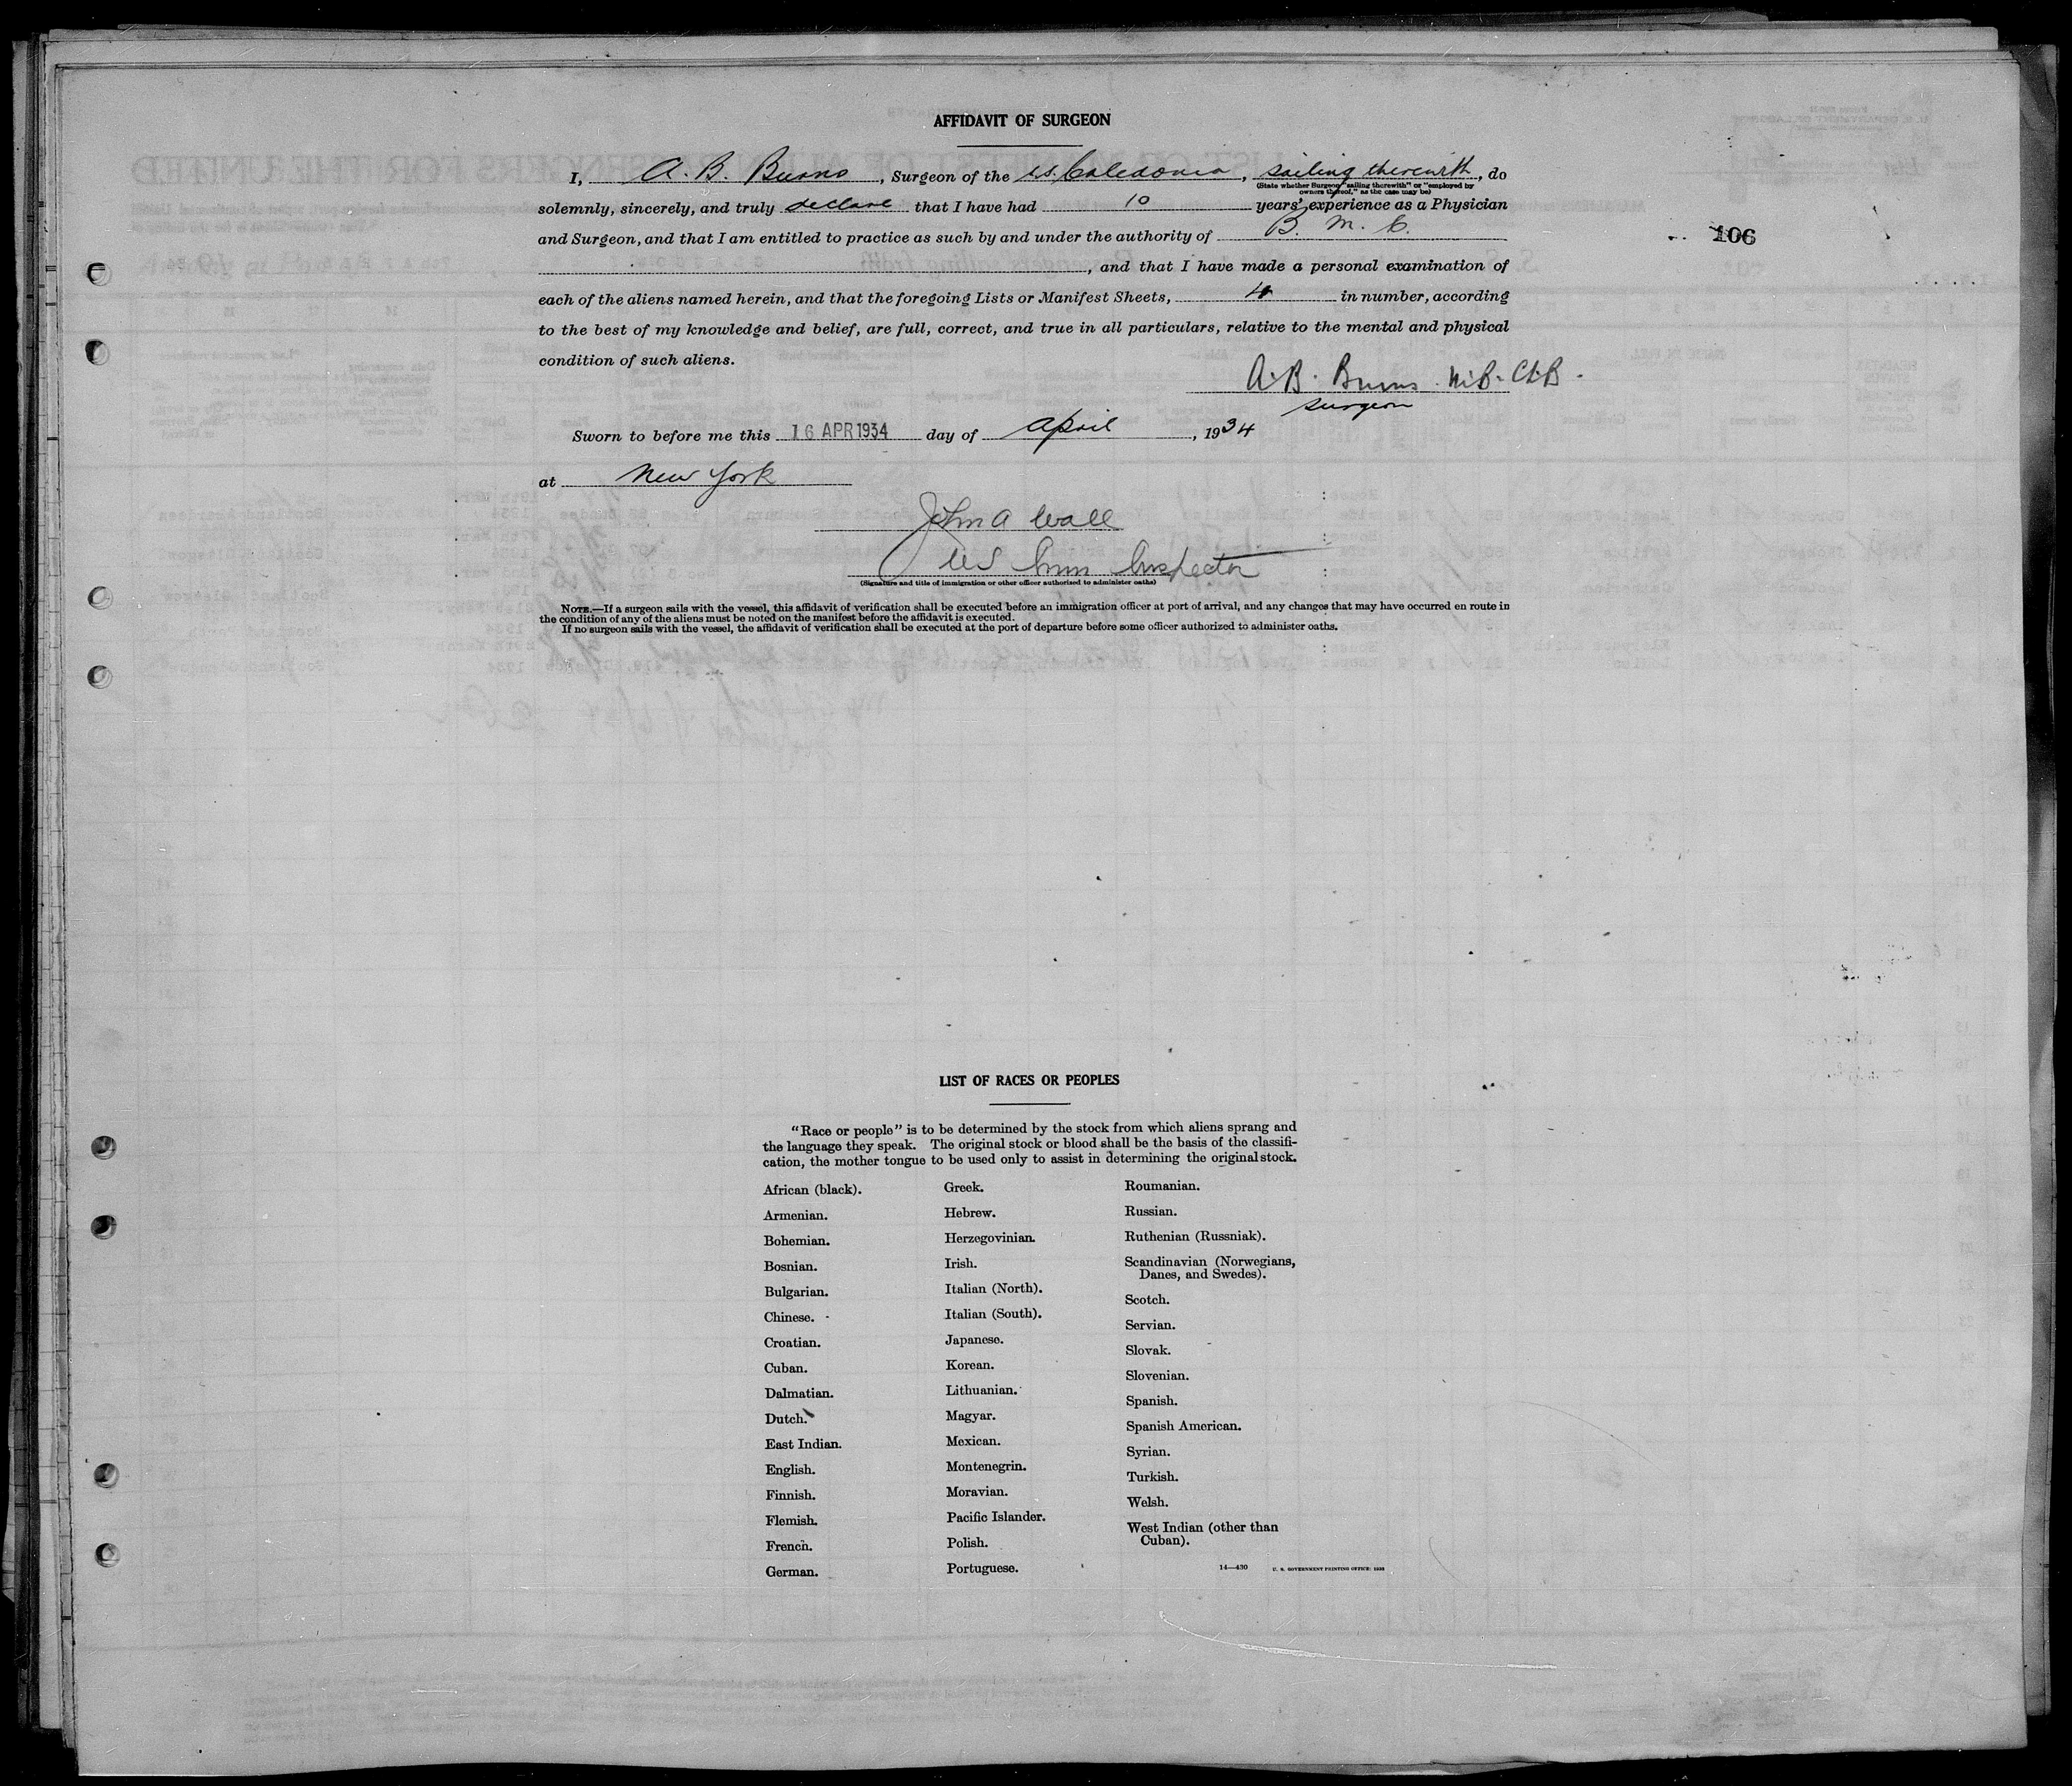 AFFIDAVIT OF SURGEON
I, A. B. Burns, Surgeon of the s.s. Caledonia, sailing therewith, do
(State whether Surgeon "sailing therewith" or "employed by
owners thereof," as the case may be)
solemnly, sincerely, and truly declare that I have had 10 years' experience as a Physician
and Surgeon, and that I am entitled to practice as such by and under the authority of B. M. C.
106
, and that I have made a personal examination of
each of the aliens named herein, and that the foregoing Lists or Manifest Sheets, 4 in number, according
to the best of my knowledge and belief, are full, correct, and true in all particulars, relative to the mental and physical
condition of such aliens.
A. B. Burns. M.B. Ch.B.
surgeon
Sworn to before me this 16 APR 1934 day of April, 1934
at New York
John A Wall
US Imm Inspector
(Signature and title of immigration or other officer authorized to administer oaths)
NOTE.—If a surgeon sails with the vessel, this affidavit of verification shall be executed before an immigration officer at port of arrival, and any changes that may have occurred en route in
the condition of any of the aliens must be noted on the manifest before the affidavit is executed.
If no surgeon sails with the vessel, the affidavit of verification shall be executed at the port of departure before some officer authorized to administer oaths.
LIST OF RACES OR PEOPLES
"Race or people" is to be determined by the stock from which aliens sprang and
the language they speak. The original stock or blood shall be the basis of the classifi-
cation, the mother tongue to be used only to assist in determining the original stock.
African (black).
Armenian.
Bohemian.
Bosnian.
Bulgarian.
Chinese.
Croatian.
Cuban.
Dalmatian.
Dutch.
East Indian.
English.
Finnish.
Flemish.
French.
German.
Greek.
Hebrew.
Herzegovinian.
Irish.
Italian (North).
Italian (South).
Japanese.
Korean.
Lithuanian.
Magyar.
Mexican.
Montenegrin.
Moravian.
Pacific Islander.
Polish.
Portuguese.
Roumanian.
Russian.
Ruthenian (Russniak).
Scandinavian (Norwegians,
Danes, and Swedes).
Scotch.
Servian.
Slovak.
Slovenian.
Spanish.
Spanish American.
Syrian.
Turkish.
Welsh.
West Indian (other than
Cuban).
14—430 U. S. GOVERNMENT PRINTING OFFICE: